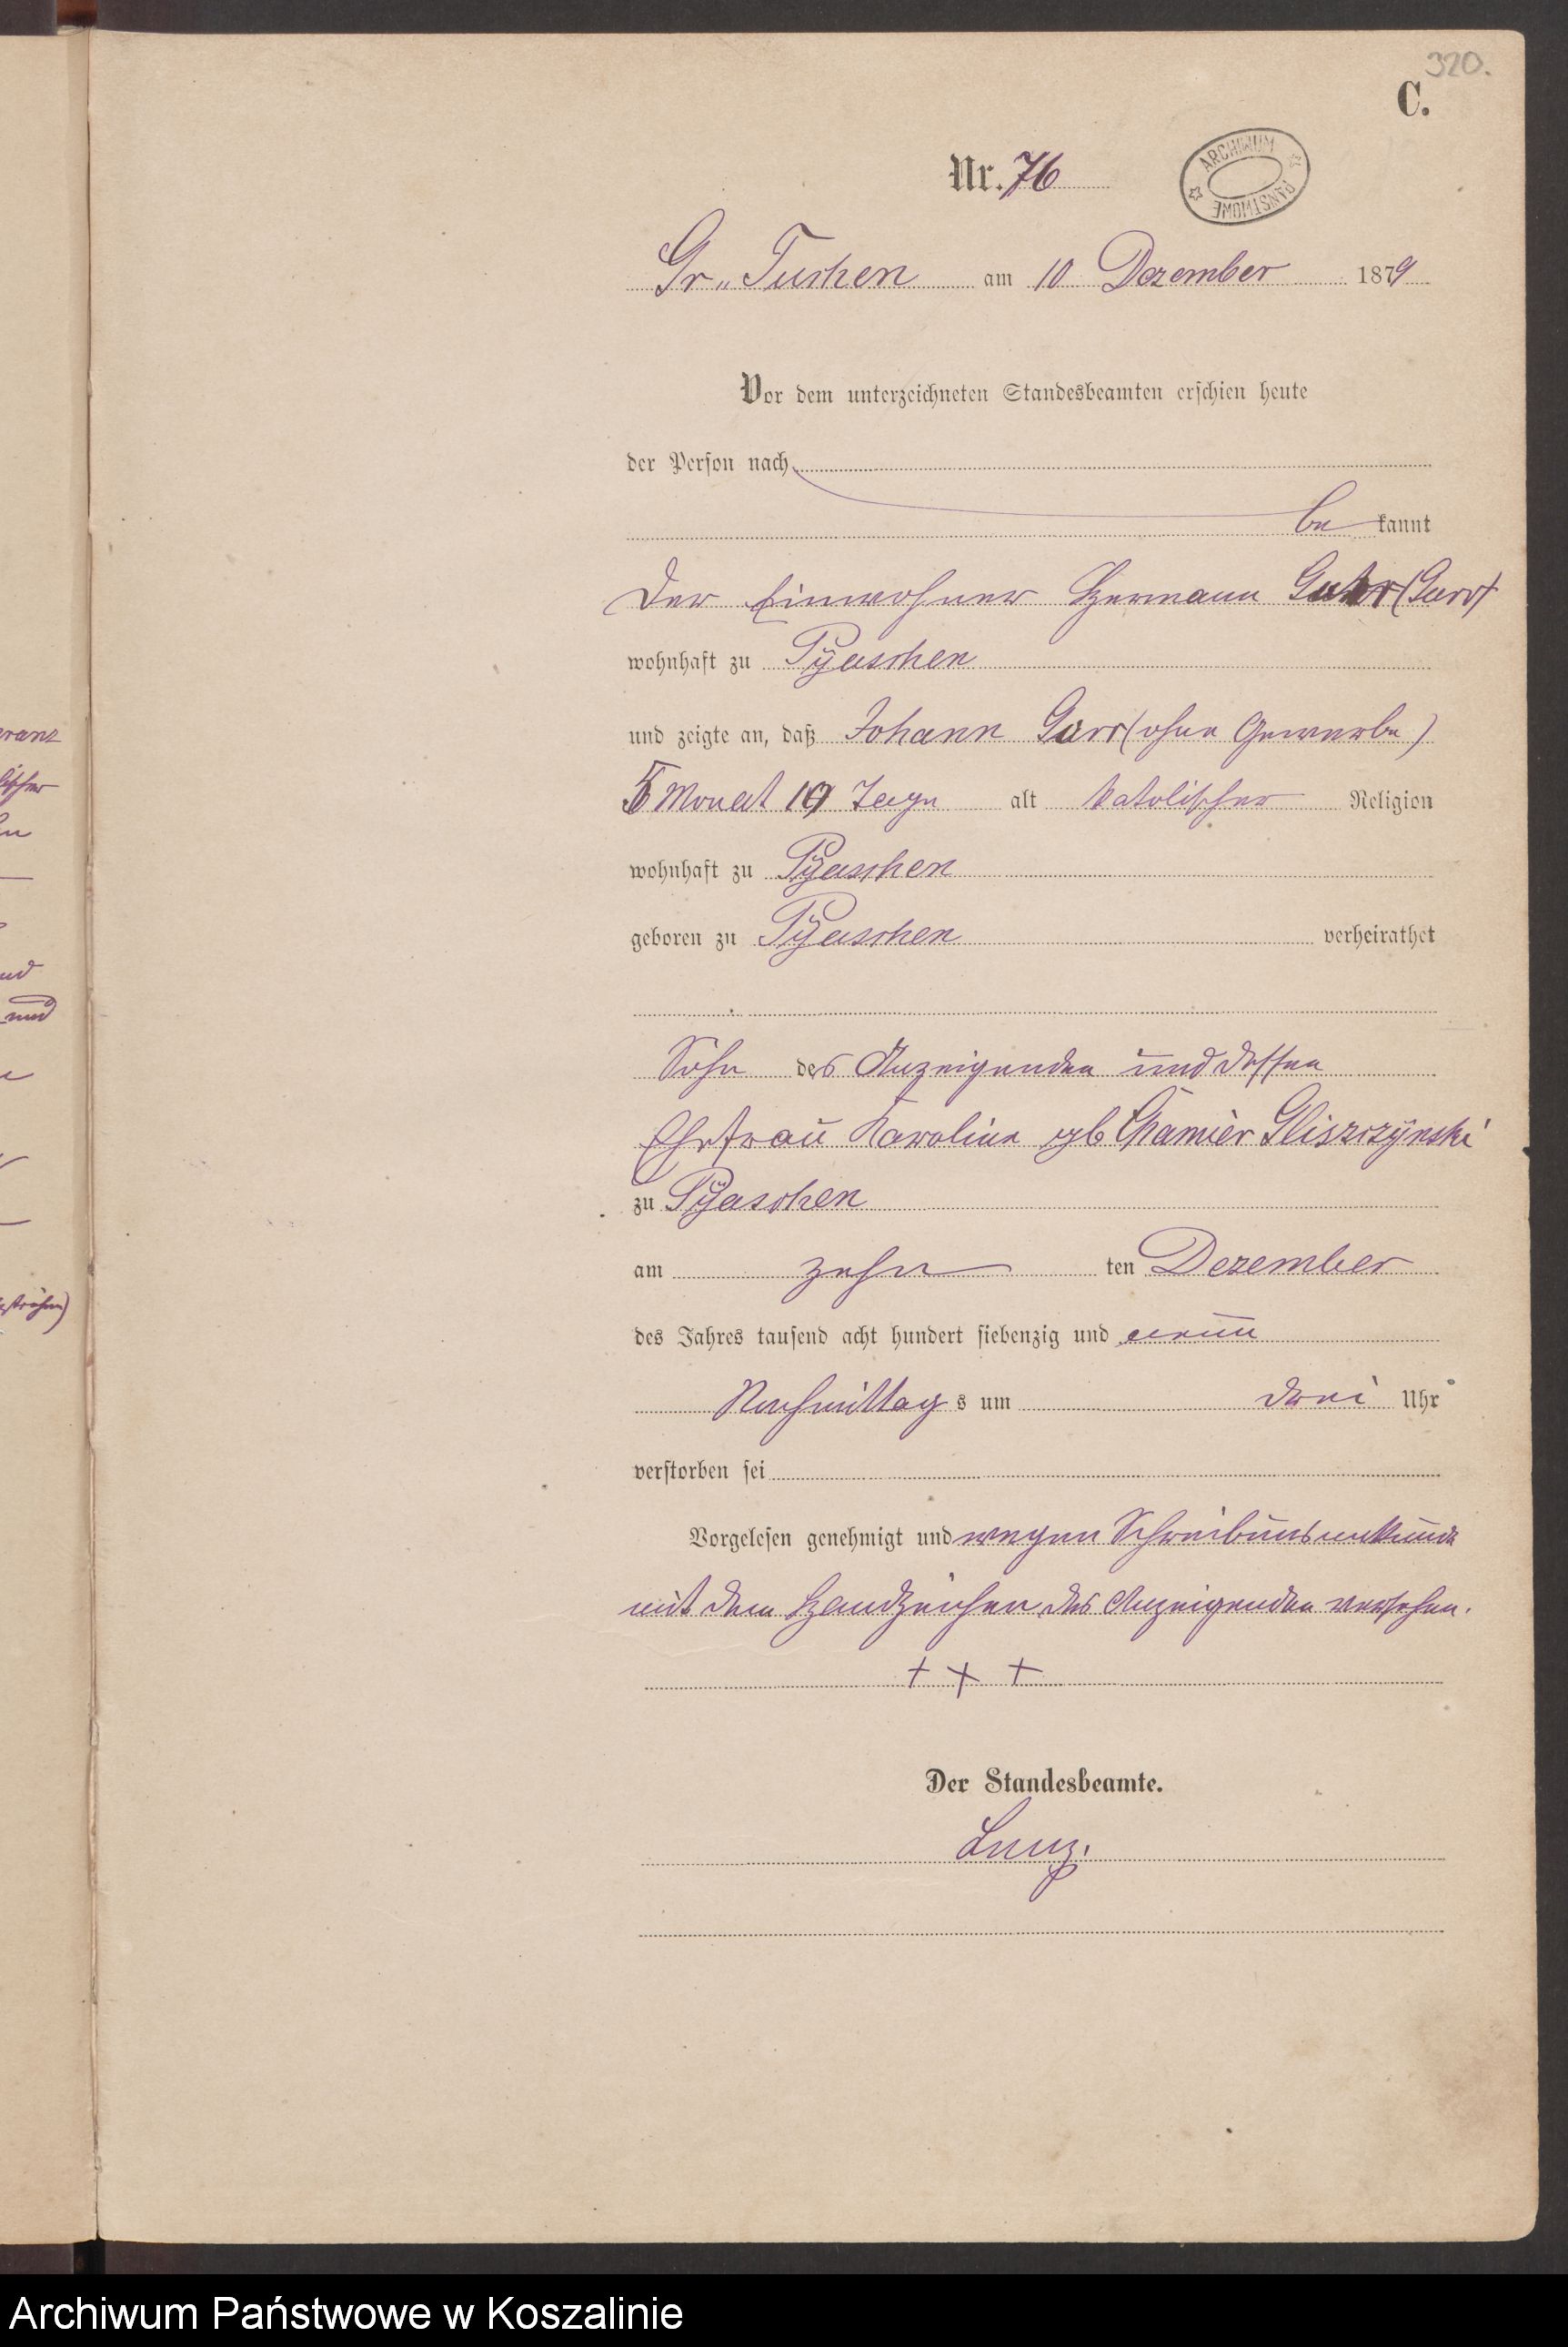 320.
C.
Nr. 76
ARCHIWUM PAŃSTWOWE
Gr. Tuchen am 10 Dezember 1879
Vor dem unterzeichneten Standesbeamten erschien heute
der Person nach
be kannt
der Einwohner Hermann (Garr)
wohnhaft zu Pyaschen
und zeigte an, daß Johann Garr (ohne Gewerbe)
5 Monat 19 Tage alt katolischer Religion
wohnhaft zu Pyaschen
geboren zu Pyaschen verheirathet
Sohn des Anzeigenden und dessen
Ehefrau Karoline gb Chamier Gliszczynski
zu Pyaschen
am zehn ten Dezember
des Jahres tausend acht hundert siebenzig und neun
Nachmittag s um drei Uhr
verstorben sei
Vorgelesen genehmigt und wegen Schreibunskunde
mit dem Handzeichen des Anzeigenden versehen.
+ + +
Der Standesbeamte.
Archiwum Państwowe w Koszalinie